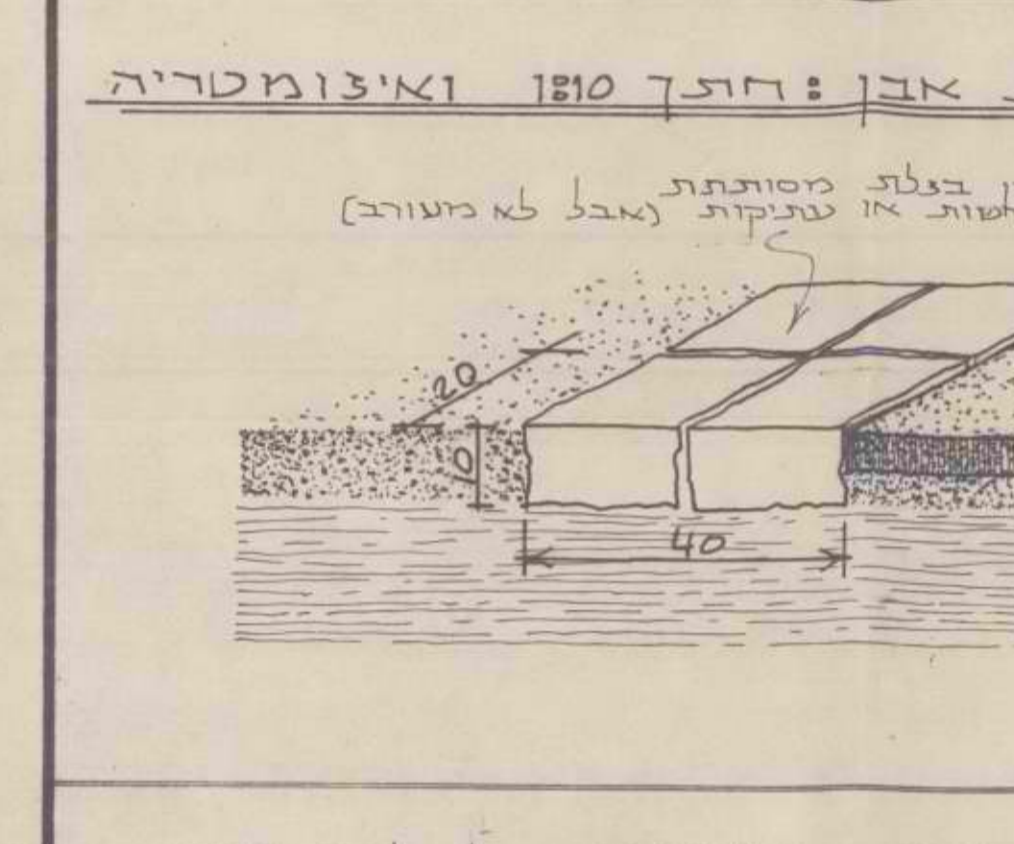 אבן : חתך 1:10 ואיזומטריה
בזלת מסותתת
או עתיקות (אבל לא מעורב)
20
10
40